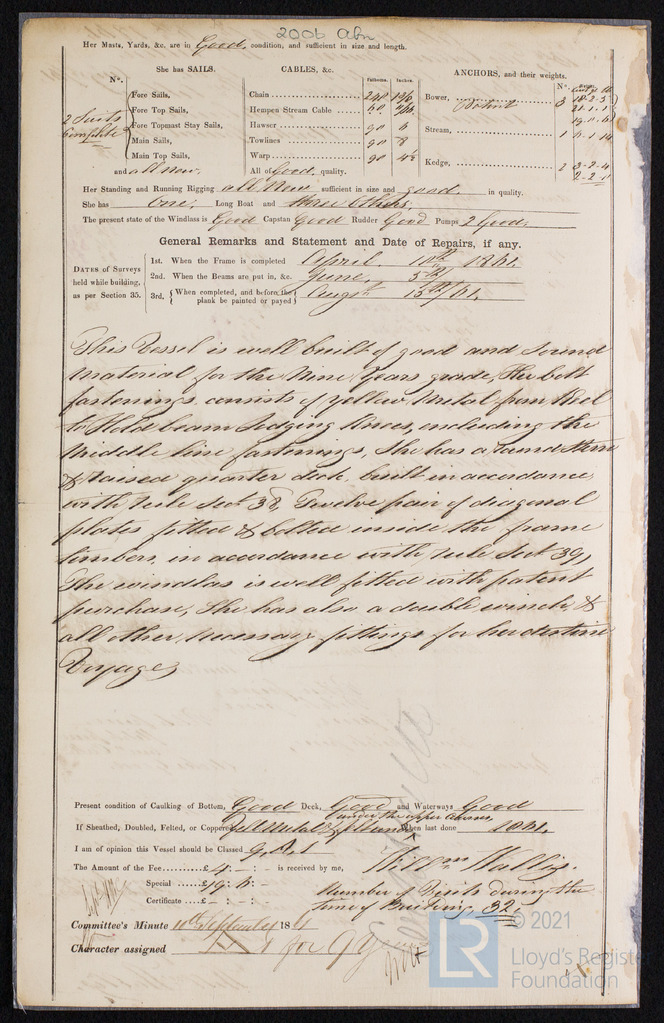 2006 Abn
Her Masts, Yards, &c. are in Good condition, and sufficient in size and length.
She has SAILS. CABLES, &c. ANCHORS, and their weights.
N°. Fathoms. Inches. N°.
Fore Sails, Chain 240 Bower, Patent 3
2 Suits Fore Top Sails, Hempen Stream Cable
Complete Fore Topmast Stay Sails, Hawser 90 6 Stream, 1
Main Sails, Towlines 90 8
Main Top Sails, Warp 90 Kedge, 2 3-2-4
and all new. All of Good quality. 2-2-
Her Standing and Running Rigging all New sufficient in size and good in quality.
She has One, Long Boat and three Others.
The present state of the Windlass is Good Capstan Good Rudder Good Pumps 2 Good.
General Remarks and Statement and Date of Repairs, if any.
DATES of Surveys held while building, as per Section 35.
1st. When the Frame is completed April 10th 1861.
2nd. When the Beams are put in, &c. June 5th
3rd. { When completed, and before the plank be painted or payed } Augst 13th/61.
This Vessel is well built of good and Sound
Material for the Nine Years grade, Her bolt
fastenings consists of yellow Metal from Keel
to Hold beam Lodging Knees, including the
Middle line fastenings, She has a round Stern
& Raised quarter deck, built in accordance
with rule Sect 38, Twelve pair of diagonal
plates fitted & bolted inside the frame
timbers, in accordance with rule Sect 39,
The windlas is well fitted with patent
purchase, She has also a double winch &
all other necessary fittings for her destine
Voyage,
Present condition of Caulking of Bottom, Good Deck, Good and Waterways Good
under the upper
If Sheathed, Doubled, Felted, or Coppered Yell Metal & When last done 1861.
I am of opinion this Vessel should be Classed 9 A1
The Amount of the Fee £ 4 : - : - is received by me, Willm Wallis
Special £ 19 : : -
Number of Visits during the
time of Building, 32
Certificate £ - : - :
Committee's Minute 10th September 1861
Character assigned A 1 for 9 Years
© 2021
LR Lloyd's Register
Foundation